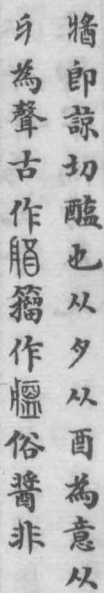 即諒切醢也从夕从酉為意从
爿為聲古作籀作俗醬非